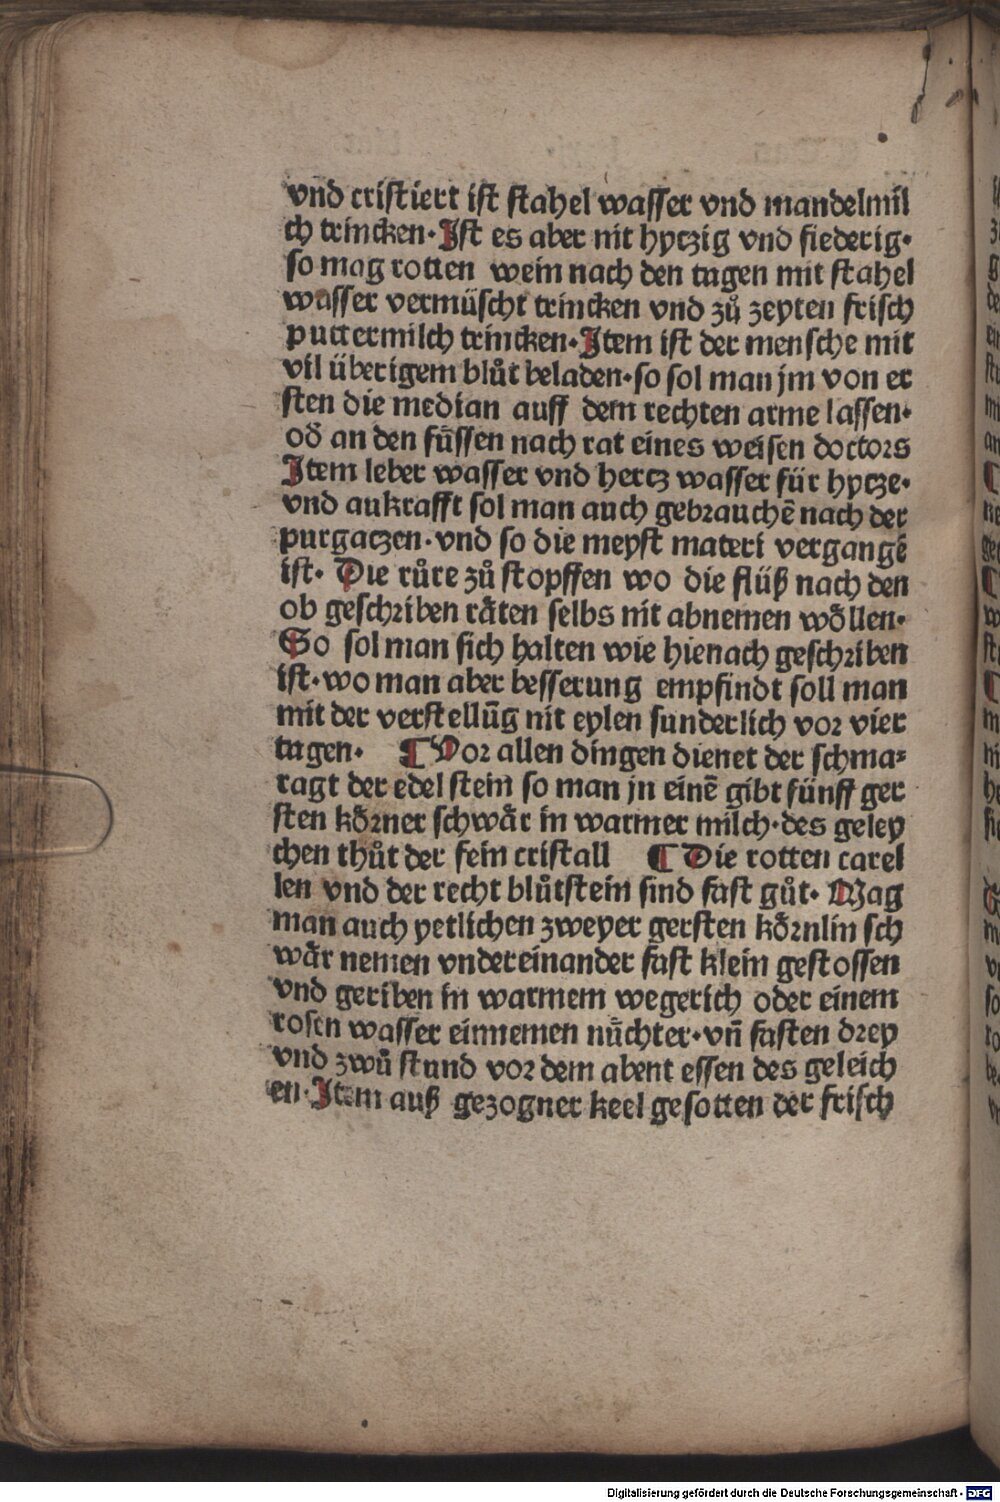 vnd cristiert ist stahel wasser vnd mandelmil
ch trincken· Ist es aber nit hytzig vnd fiederig·
so mag rotten wein nach den tagen mit stahel
wasser vermüscht trincken vnd zů zeyten frisch
puttermilch trincken· Item ist der mensche mit
vil überigem blůt beladen· so sol man jm von er
sten die median auff dem rechten arme lassen·
od̕ an den füssen nach rat eines weisen doctors
Item leber wasser vnd hertz wasser für hytze·
vnd ankrafft sol man auch gebrauchē nach der
purgatzen· vnd so die meyst materi vergangē
ist· Die růre zů stopffen wo die flüß nach den
ob geschriben räten selbs nit abnemen wöllen·
So sol man sich halten wie hienach geschriben
ist· wo man aber besserung empfindt soll man
mit der verstellūg nit eylen sunderlich vor vier
tagen· ¶ Vor allen dingen dienet der schma⸗
ragt der edel stein so man jn einē gibt fünff ger
sten körner schwär in warmer milch· des geley
chen thůt der fein cristall ¶ Die rotten carel
len vnd der recht blůtstein sind fast gůt· Mag
man auch yetlichen zweyer gersten körnlin sch
wär nemen vndereinander fast klein gestossen
vnd geriben in warmem wegerich oder einem
rosen wasser einnemen nüchter· vn̄ fasten drey
vnd zwů stund vor dem abent essen des geleich
en· Item auß gezogner keel gesotten der frisch
Digitalisierung gefördert durch die Deutsche Forschungsgemeinschaft - DFG